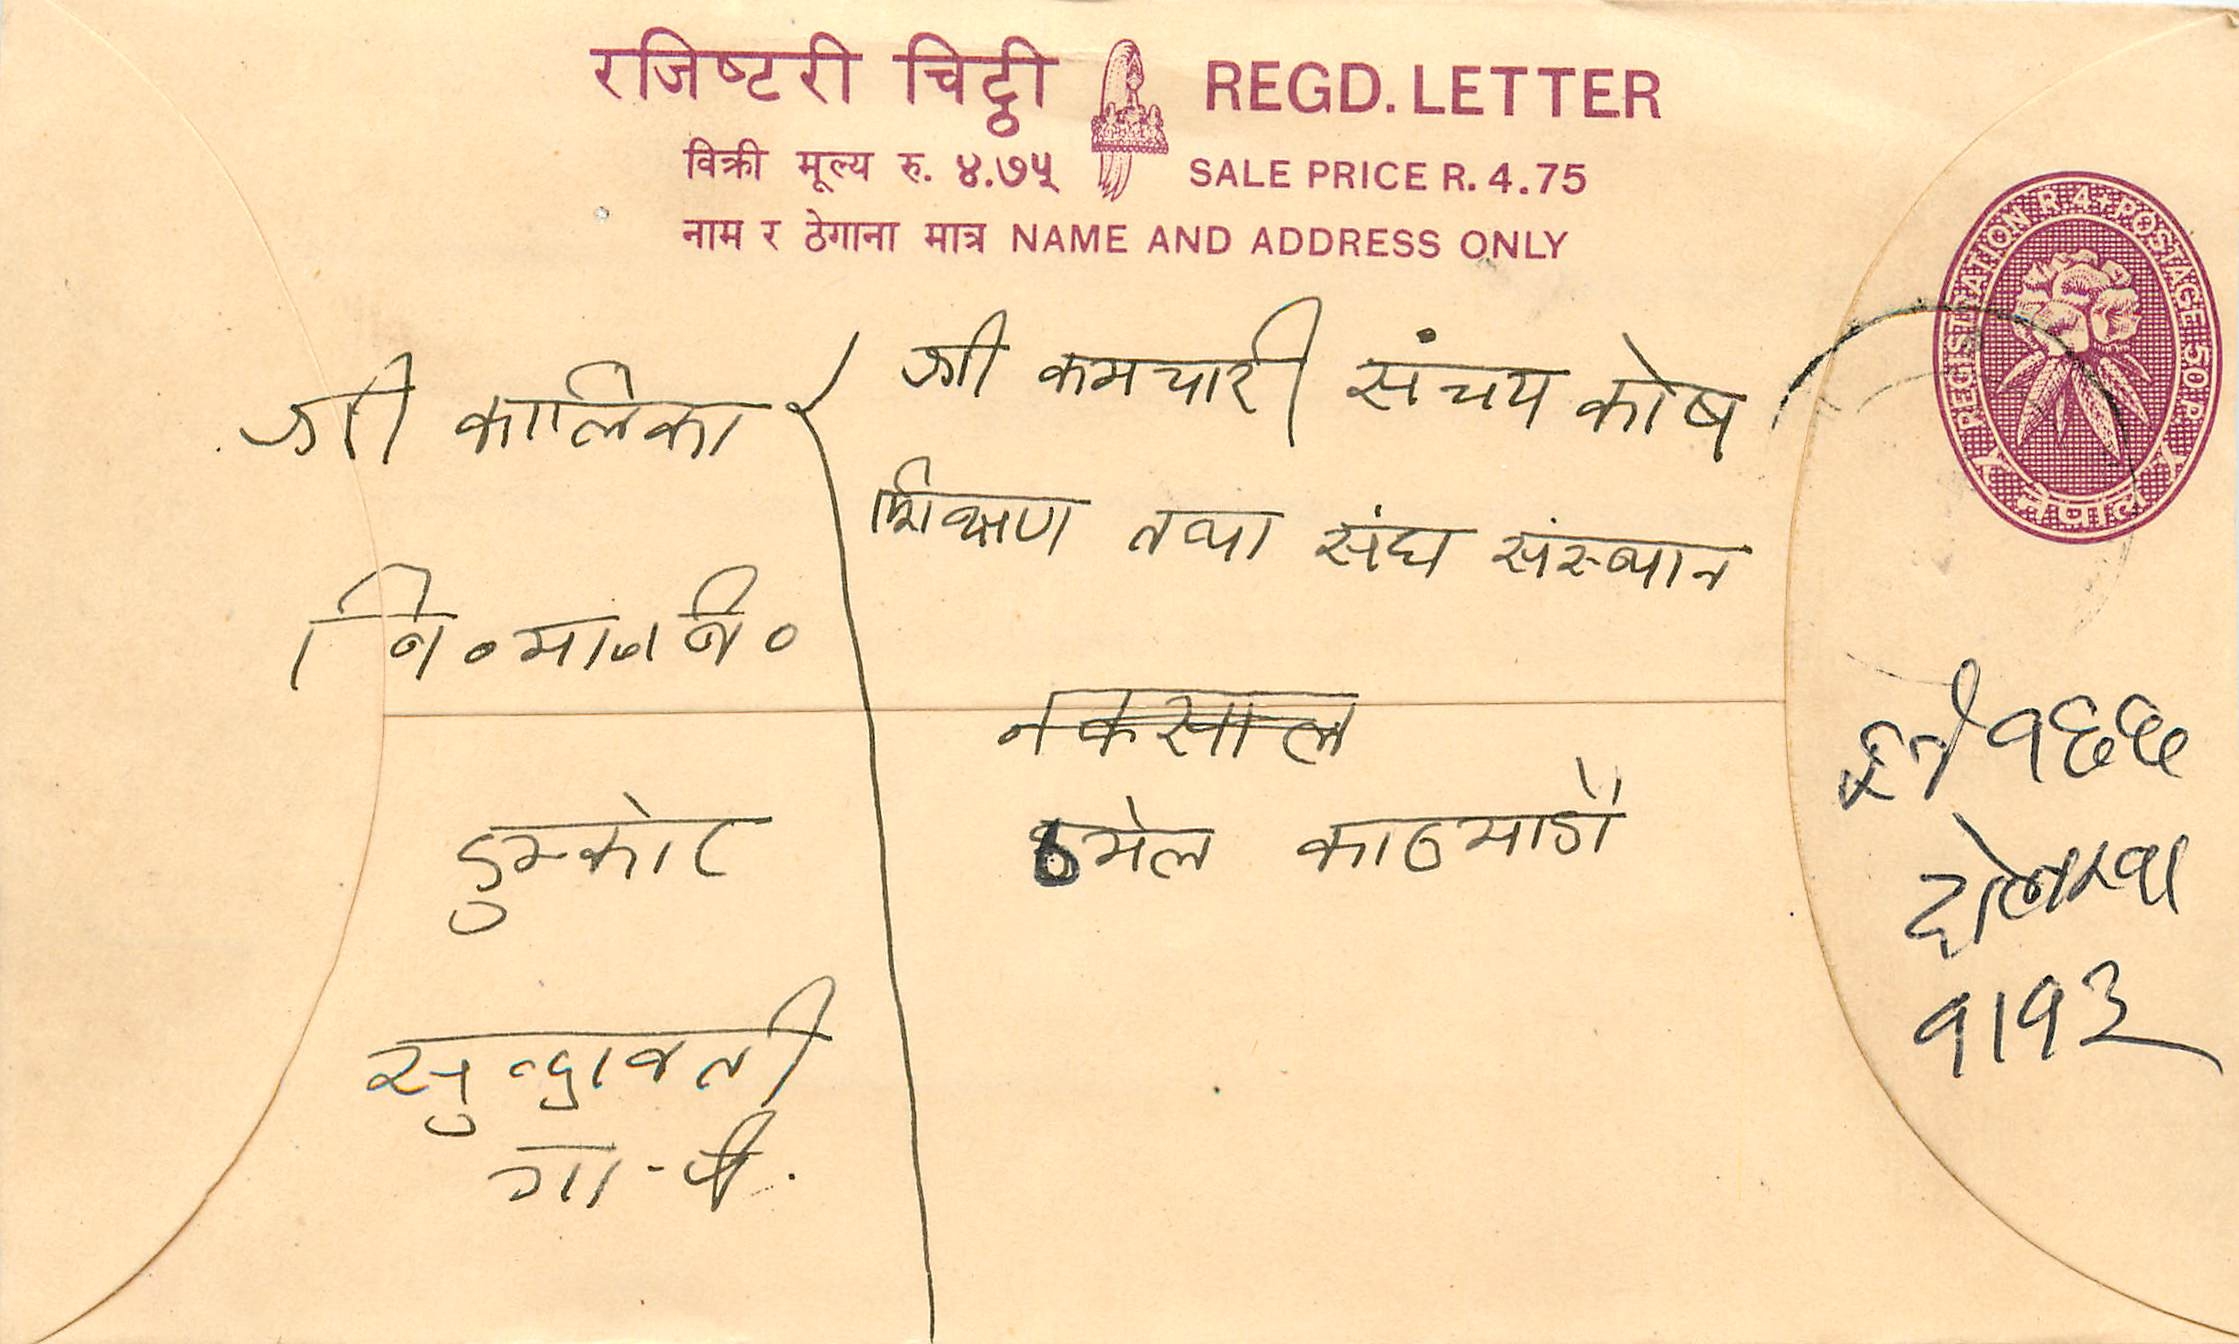 रजिष्टरी चिट्ठी REGD. LETTER
विक्री मूल्य रु. ४.७५ SALE PRICE R. 4.75
नाम र ठेगाना मात्र NAME AND ADDRESS ONLY
REGISTRATION R. 4 + POSTAGE 50 P.
नेपाल
श्री कालिका
नि०मा०वि०
डुम्कोट
सुन्द्रावती
गा-
श्री कमचारी संचय कोष
शिक्षण तथा संघ संस्थान
नकसाल
ठमेल काठमाडौं
१६६
दोलखा
१।१३